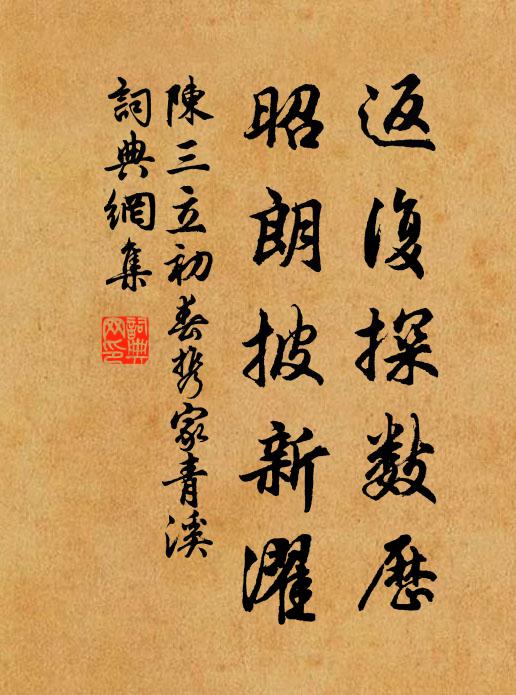 返復探數歷
昭朗披新濯
陳三立初春携家青溪
詞典網集
詞典网印